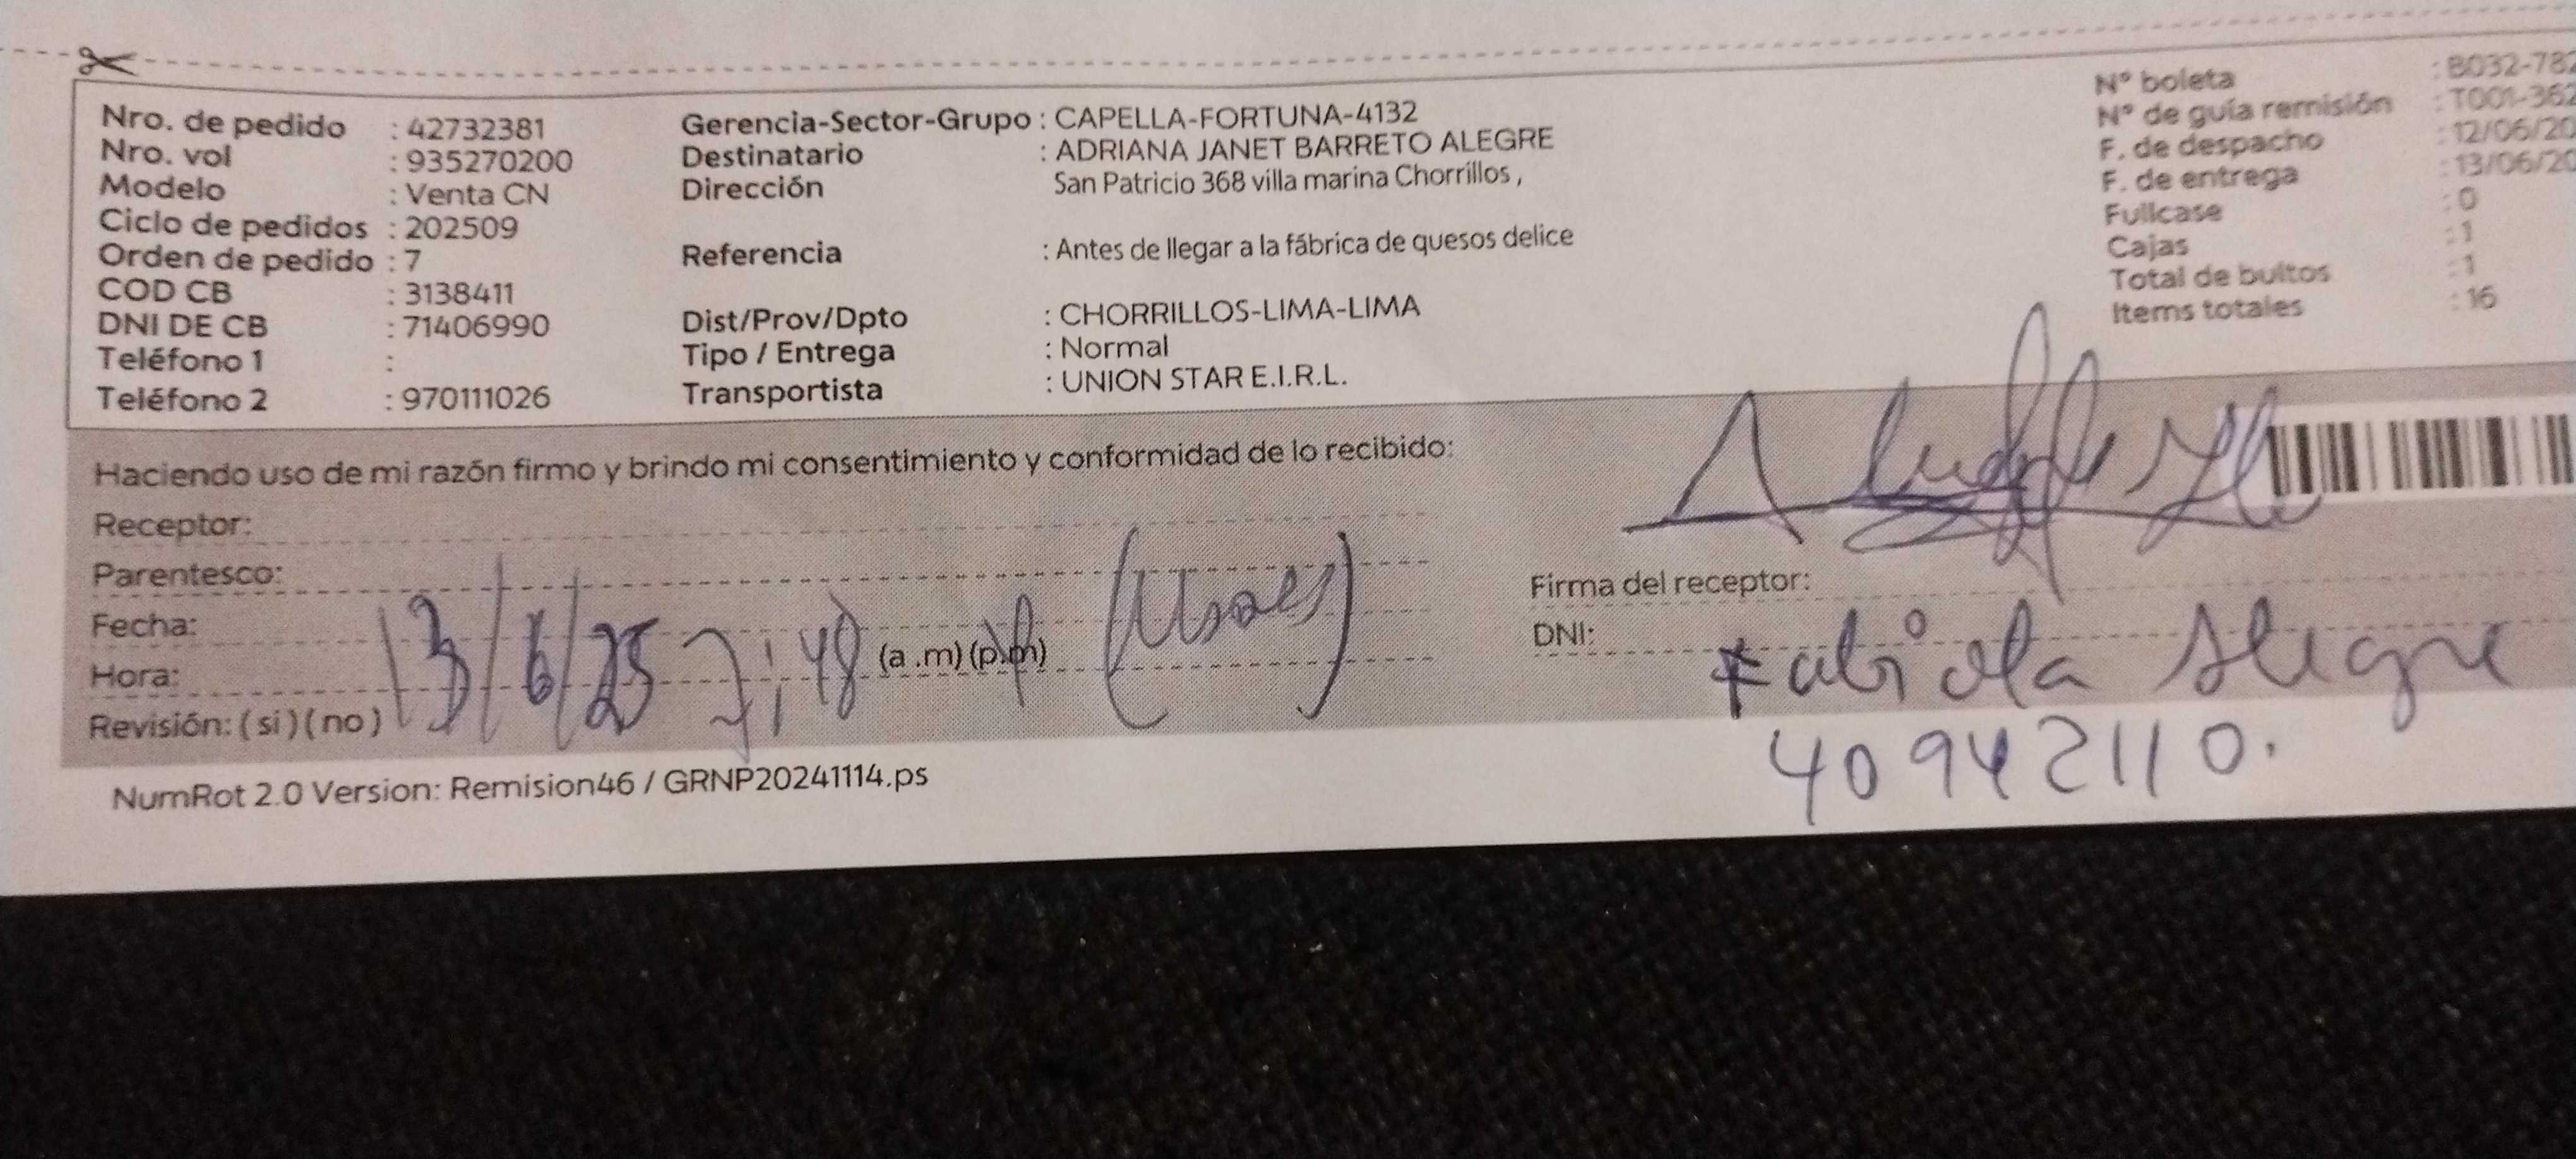 Nro. de pedido : 42732381
Nro. vol : 935270200
Modelo : Venta CN
Ciclo de pedidos : 202509
Orden de pedido : 7
COD CB : 3138411
DNI DE CB : 71406990
Teléfono 1 :
Teléfono 2 : 970111026
Gerencia-Sector-Grupo : CAPELLA-FORTUNA-4132
Destinatario : ADRIANA JANET BARRETO ALEGRE
Dirección San Patricio 368 villa marina Chorrillos ,
Referencia : Antes de llegar a la fábrica de quesos delice
Dist/Prov/Dpto : CHORRILLOS-LIMA-LIMA
Tipo / Entrega : Normal
Transportista : UNION STAR E.I.R.L.
N° boleta : B032-782
N° de guía remisión : T001-362
F. de despacho : 12/06/20
F. de entrega : 13/06/20
Fullcase : 0
Cajas : 1
Total de bultos : 1
Items totales : 16
Haciendo uso de mi razón firmo y brindo mi consentimiento y conformidad de lo recibido:
Receptor:
Parentesco:
Fecha: 13/6/25
Hora: 7:48 (a .m) (p.m)
Revisión: ( si ) ( no )
Firma del receptor:
DNI:
Fabiola Alegre
40942110.
NumRot 2.0 Version: Remision46 / GRNP20241114.ps